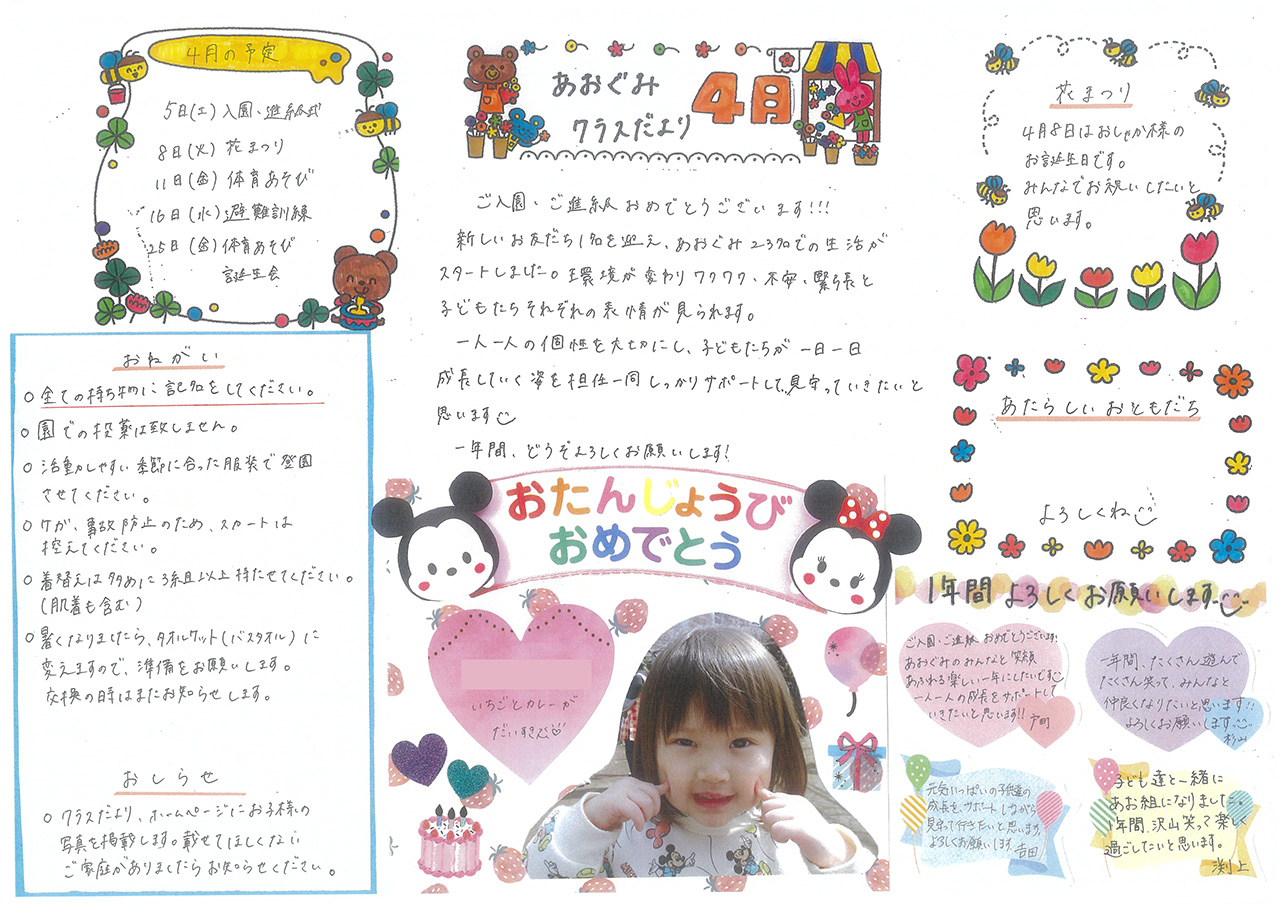 4月の予定
5日(土)入園、進級式
8日(火)花まつり
11日(金)体育あそび
16日(水)避難訓練
25日(金)体育あそび
誕生会
おねがい
○全ての持ち物に記名をしてください。
○園での投薬は致しません。
○活動しやすい季節に合った服装で登園
させてください。
○ケガ、事故防止のため、スカートは
控えてください。
○着替えは多めに3組以上持たせてください。
(肌着も含む)
○暑くなりましたら、タオルケット(バスタオル)に
変えますので、準備をお願いします。
交換の時はまたお知らせします。
おしらせ
○クラスだより、ホームページにお子様の
写真を掲載します。載せてほしくない
ご家庭がありましたらお知らせください。
あおぐみ
クラスだより
4月
ご入園・ご進級おめでとうございます!!!
新しいお友だち1名を迎え、あおぐみ23名での生活が
スタートしました。環境が変わりワクワク、不安、緊張と
子どもたちそれぞれの表情が見られます。
一人一人の個性を大切にし、子どもたちが一日一日
成長していく姿を担任一同しっかりサポートして、見守っていきたいと
思います
一年間、どうぞよろしくお願いします!
おたんじょうび
おめでとう
いちごとカレーが
だいすき♡
花まつり
4月8日はおしゃか様の
お誕生日です。
みんなでお祝いしたいと
思います。
あたらしいおともだち
よろしくね
1年間よろしくお願いします
ご入園・ご進級おめでとうございます!
あおぐみのみんなと笑顔
あふれる楽しい一年にしたいです
一人一人の成長をサポートして
いきたいと思います!! 戸町
一年間、たくさん遊んで
たくさん笑って、みんなと
仲良くなりたいと思います!!
よろしくお願いします
杉山
元気いっぱいの子供達の
成長を、サポートしながら
見守って行きたいと思います。
よろしくお願いします。吉田
子ども達と一緒に
あお組になりました。
1年間、沢山笑って楽しく
過ごしたいと思います。
渕上